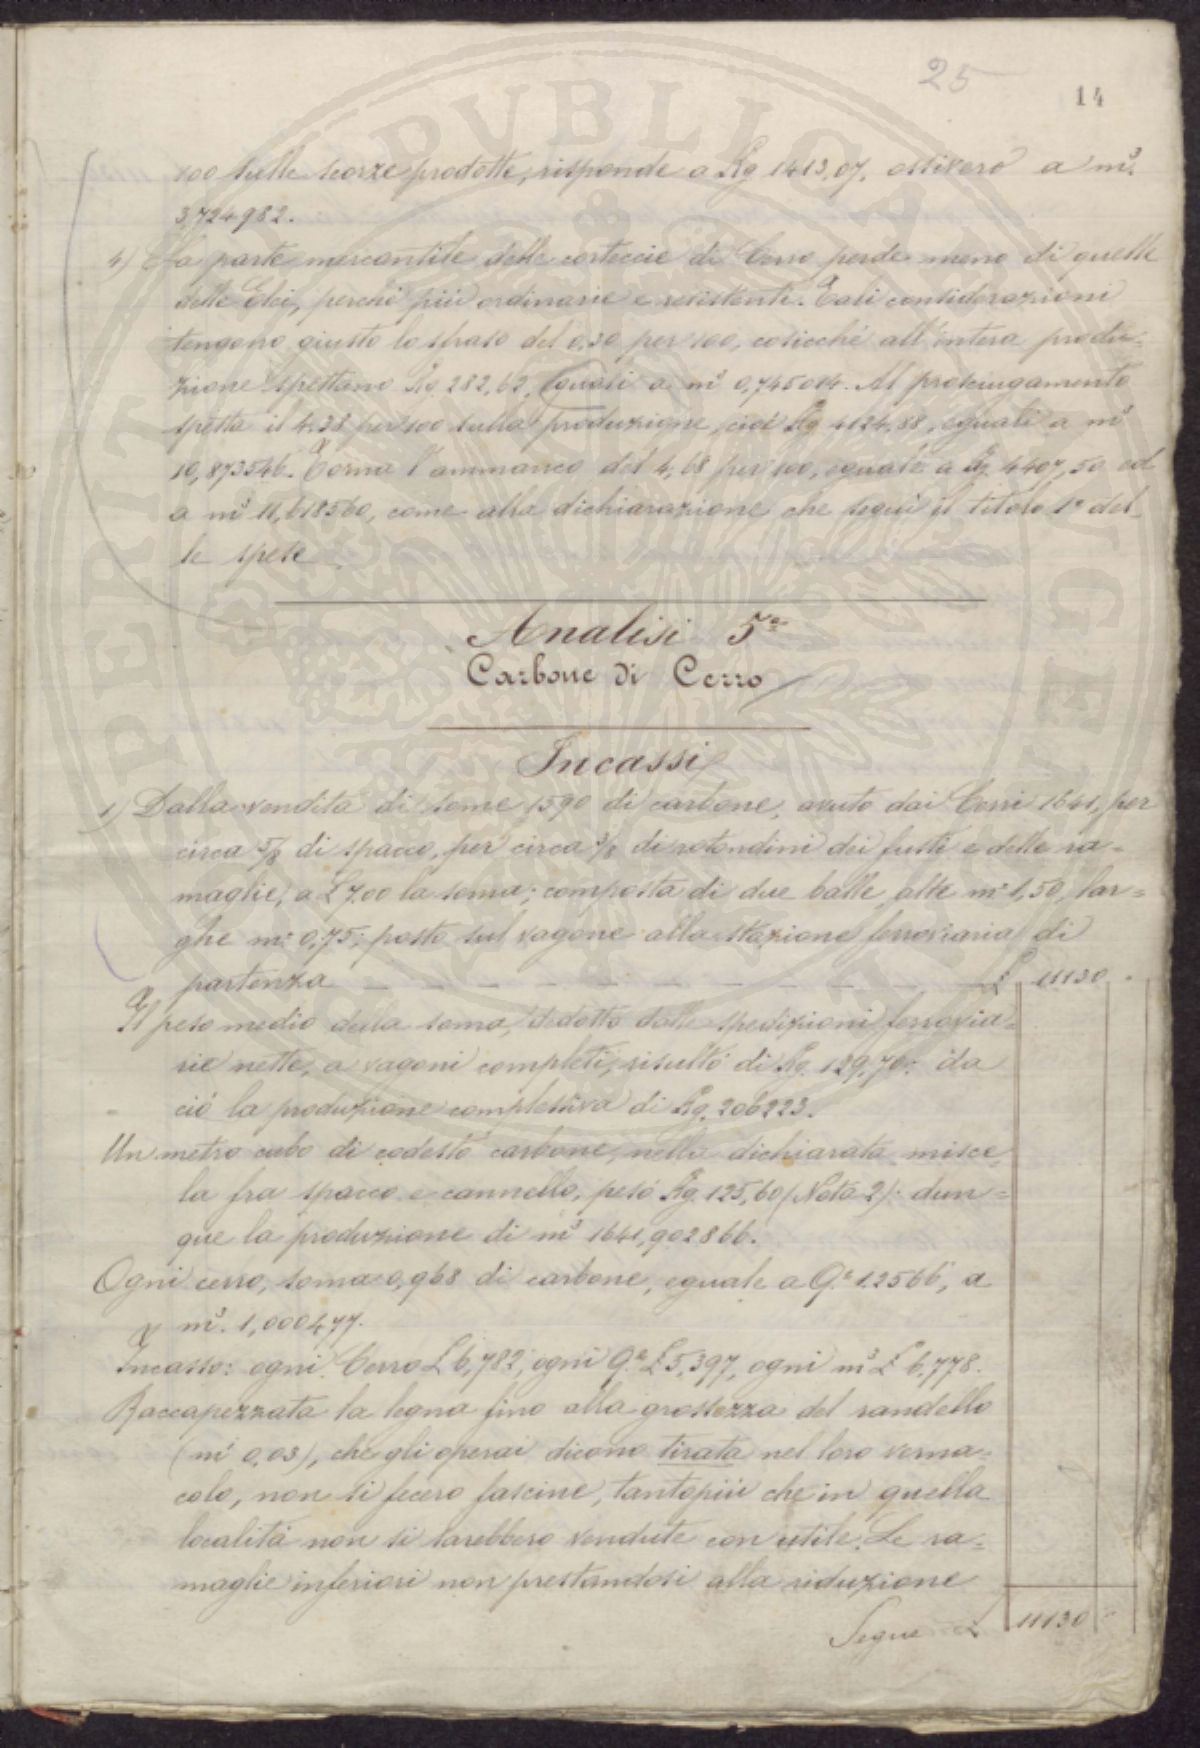 25
14
100 sulle scorze prodotte, risponde a Kg 1413,07, ossivero a m³
3,724982.
4) La parte mercantile delle corteccie di Cerro perde meno di quelle
delle Elci, perchè più ordinarie e resistenti. Tali considerazioni
tengono giusto lo straso del 0,30 per 100, cosicchè all'intera produ-
zione spettano Kg. 282,62, eguali a m³ 0,745014. Al prosciugamento
spetta il 4,38 per 100 sulla produzione, cioè Kg 4124,88, eguali a m³
10,873546. Torna l'ammanco del 4,68 per 100, eguale a Kg. 4407,50 ed
a m³ 11,618560, come alla dichiarazione che seguì il titolo 1° del-
le spese
Analisi 5ª
Carbone di Cerro
Incassi
1) Dalla vendita di some 1590 di carbone, avuto dai Cerri 1641, per
circa 5/8 di spacco, per circa 3/8 di rotondini dei fusti e delle ra=
maglie, a £ 7.00 la soma; composta di due balle alte m: 1,50, lar=
ghe m: 0,75; posto sul vagone alla stazione ferroviaria di
partenza £ 11130 -
Il peso medio della soma, dedotto dalle spedizioni ferrovia=
rie nette, a vagoni completi, risultò di Kg. 129,70: da
ciò la produzione complessiva di Kg. 206223.
Un metro cubo di codesto carbone, nella dichiarata misce=
la fra spacco e cannello, pesò Kg. 125,60 (Nota 2): dun=
que la produzione di m³ 1641,902866.
Ogni cerro, soma 0,968 di carbone, eguale a Q.e 1.2566, a
m³. 1,000477.
Incasso: ogni Cerro £ 6,782, ogni Q.e £ 5,397, ogni m³ £ 6,778.
Raccapezzata la legna fino alla grossezza del randello
(m: 0,03), che gli operai dicono tirata nel loro verna=
colo, non si fecero fascine, tantopiù che in quella
località non si sarebbero vendute con utile. Le ra=
maglie inferiori non prestandosi alla riduzione
Segue £ 11130 -